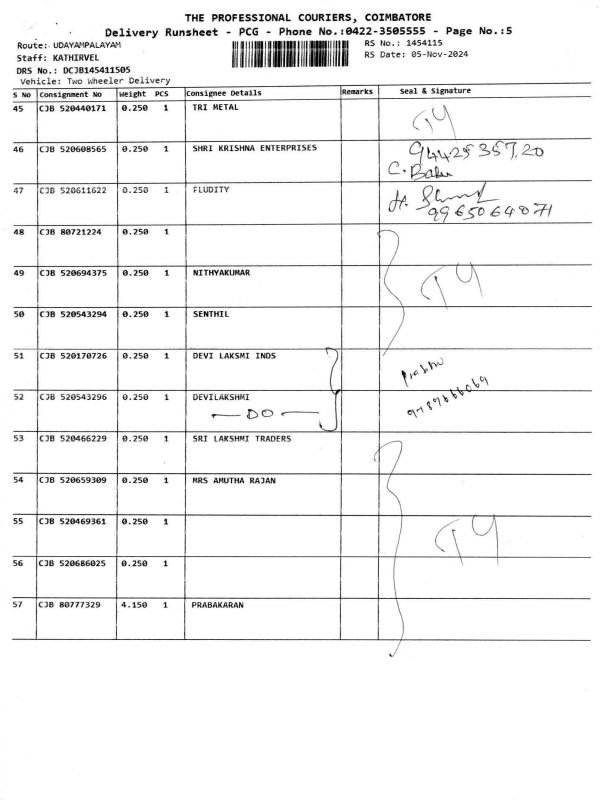 THE PROFESSIONAL COURIERS, COIMBATORE
Delivery Runsheet - PCG - Phone No.:0422-3505555 - Page No.:5
Route: UDAYAMPALAYAM
RS No.: 1454115
Staff: KATHIRVEL
RS Date: 05-Nov-2024
DRS No.: DCJB145411505
Vehicle: Two Wheeler Delivery
S No Consignment No Weight PCS Consignee Details Remarks Seal & Signature
45 CJB 520440171 0.250 1 TRI METAL
TY
46 CJB 520608565 0.250 1 SHRI KRISHNA ENTERPRISES
94425 357,20
C. Babu
47 CJB 520611622 0.250 1 FLUDITY
9965064071
48 CJB 80721224 0.250 1
49 CJB 520694375 0.250 1 NITHYAKUMAR
TY
50 CJB 520543294 0.250 1 SENTHIL
51 CJB 520170726 0.250 1 DEVI LAKSMI INDS
Prabhu
52 CJB 520543296 0.250 1 DEVILAKSHMI
9789866069
— DO —
53 CJB 520466229 0.250 1 SRI LAKSHMI TRADERS
54 CJB 520659309 0.250 1 MRS AMUTHA RAJAN
55 CJB 520469361 0.250 1
TY
56 CJB 520686025 0.250 1
57 CJB 80777329 4.150 1 PRABAKARAN